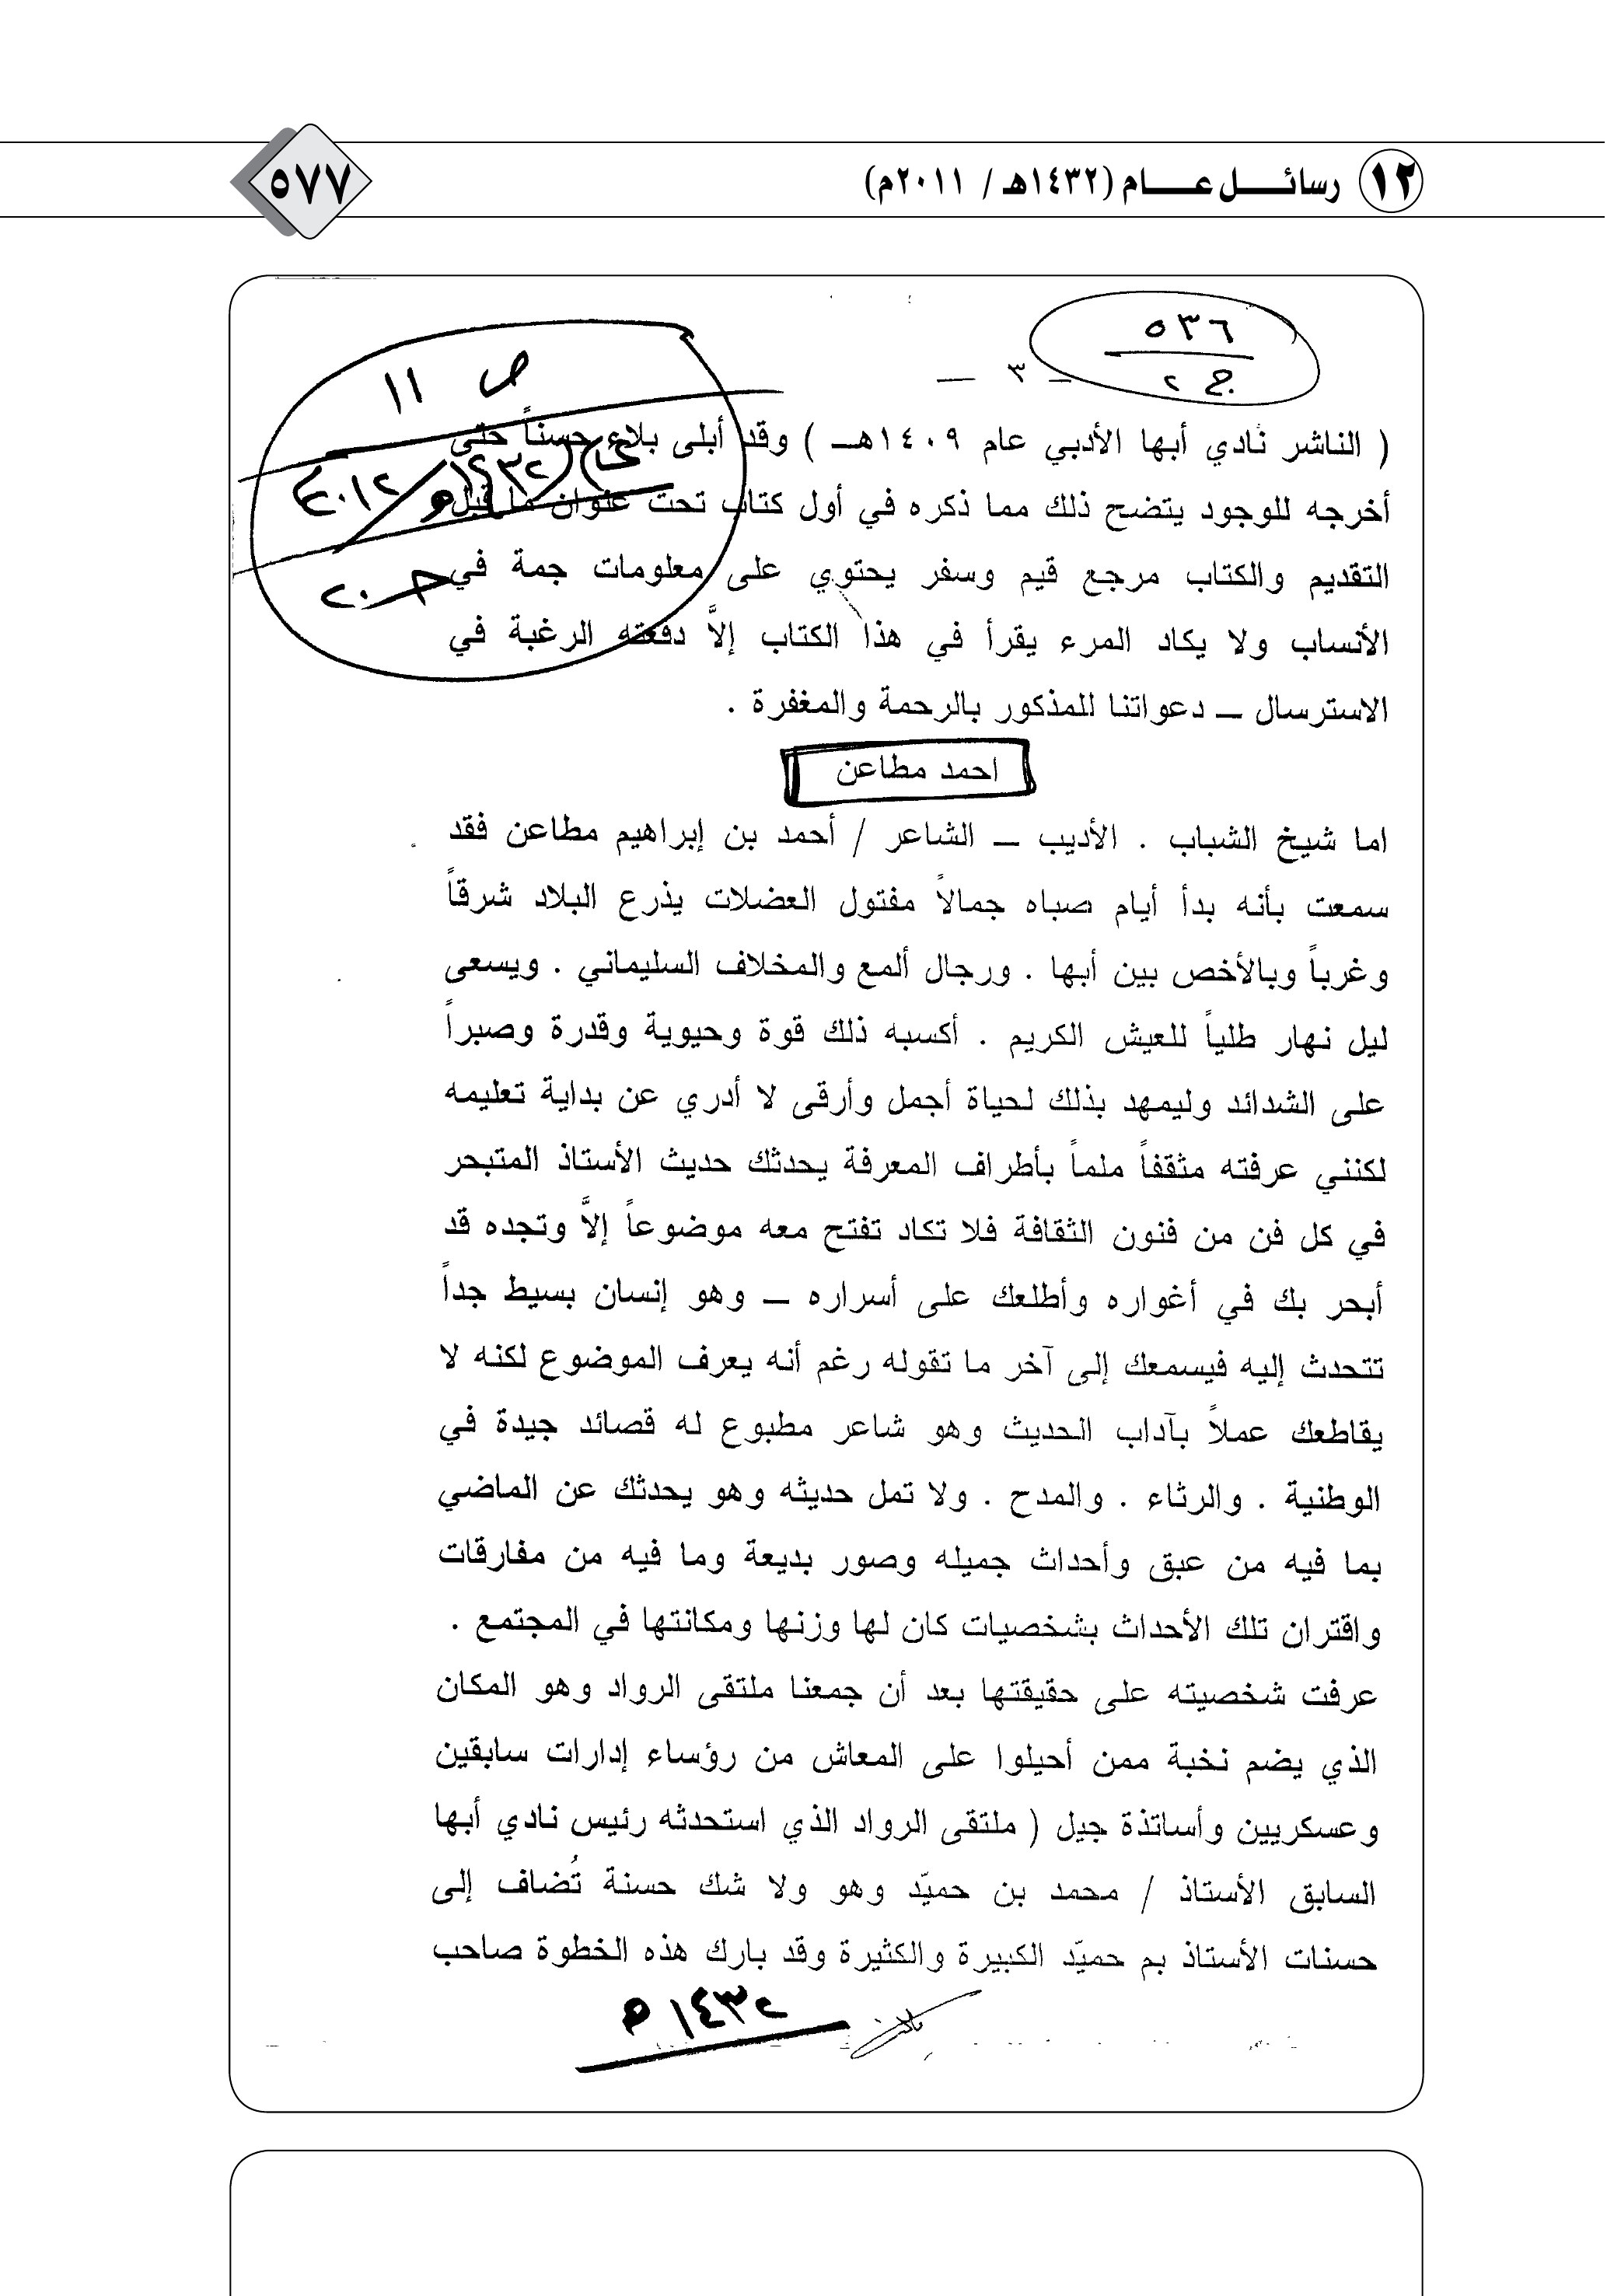 ١٢ رسائل عام (١٤٣٢هـ / ٢٠١١م)
٥٧٧
٥٣٦
ج ٢
— ٣ —
ص ١١
( الناشر نادي أبها الأدبي عام ١٤٠٩هـ ) وقد أبلى بلاء حسناً حتى
أخرجه للوجود يتضح ذلك مما ذكره في أول كتاب تحت عنوان ما قبل
التقديم والكتاب مرجع قيم وسفر يحتوي على معلومات جمة في
الأنساب ولا يكاد المرء يقرأ في هذا الكتاب إلاَّ دفعته الرغبة في
الاسترسال — دعواتنا للمذكور بالرحمة والمغفرة .
احمد مطاعن
اما شيخ الشباب . الأديب — الشاعر / أحمد بن إبراهيم مطاعن فقد
سمعت بأنه بدأ أيام صباه جمالاً مفتول العضلات يذرع البلاد شرقاً
وغرباً وبالأخص بين أبها . ورجال ألمع والمخلاف السليماني . ويسعى
ليل نهار طلياً للعيش الكريم . أكسبه ذلك قوة وحيوية وقدرة وصبراً
على الشدائد وليمهد بذلك لحياة أجمل وأرقى لا أدري عن بداية تعليمه
لكنني عرفته مثقفاً ملماً بأطراف المعرفة يحدثك حديث الأستاذ المتبحر
في كل فن من فنون الثقافة فلا تكاد تفتح معه موضوعاً إلاَّ وتجده قد
أبحر بك في أغواره وأطلعك على أسراره — وهو إنسان بسيط جداً
تتحدث إليه فيسمعك إلى آخر ما تقوله رغم أنه يعرف الموضوع لكنه لا
يقاطعك عملاً بآداب الحديث وهو شاعر مطبوع له قصائد جيدة في
الوطنية . والرثاء . والمدح . ولا تمل حديثه وهو يحدثك عن الماضي
بما فيه من عبق وأحداث جميله وصور بديعة وما فيه من مفارقات
واقتران تلك الأحداث بشخصيات كان لها وزنها ومكانتها في المجتمع .
عرفت شخصيته على حقيقتها بعد أن جمعنا ملتقى الرواد وهو المكان
الذي يضم نخبة ممن أحيلوا على المعاش من رؤساء إدارات سابقين
وعسكريين وأساتذة جيل ( ملتقى الرواد الذي استحدثه رئيس نادي أبها
السابق الأستاذ / محمد بن حميّد وهو ولا شك حسنة تُضاف إلى
حسنات الأستاذ بم حميّد الكبيرة والكثيرة وقد بارك هذه الخطوة صاحب
١٤٣٢ هـ